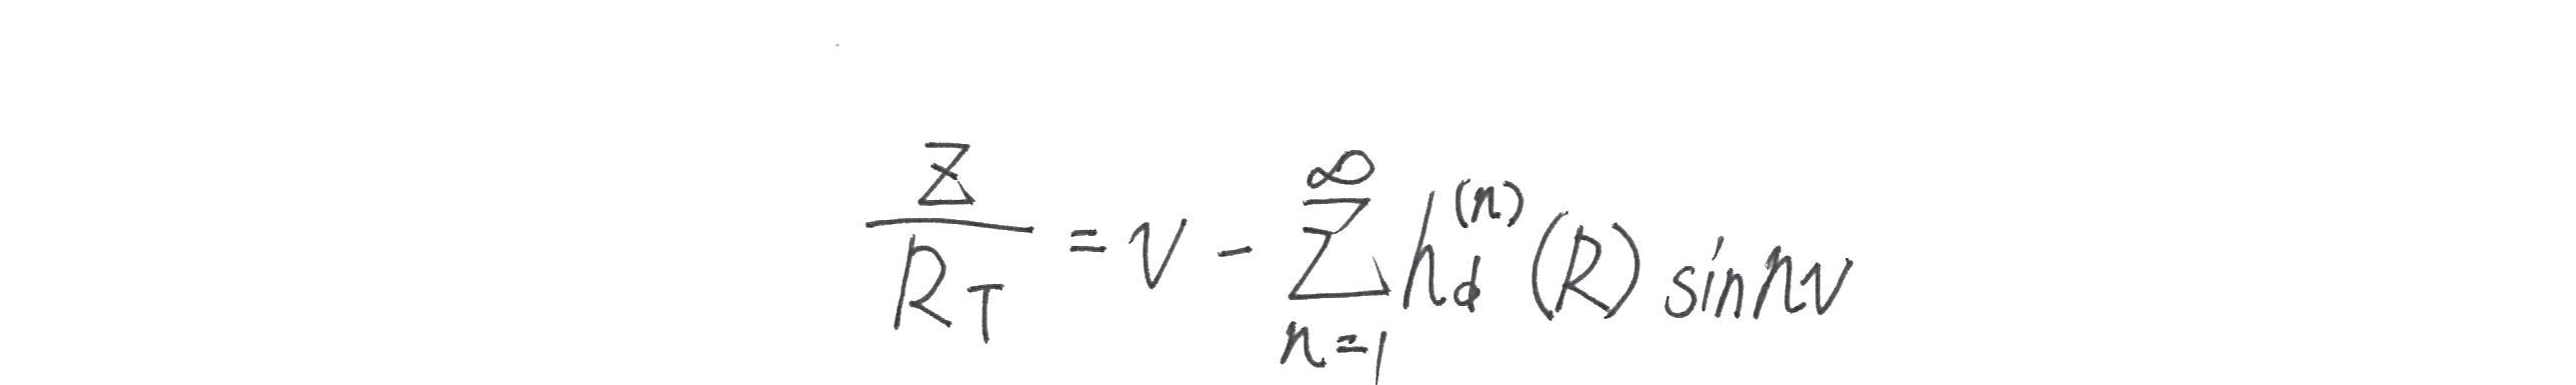 \frac{Z}{R_T} = v - \sum_{n=1}^{\infty} h_d^{(n)}(R) \sin nv